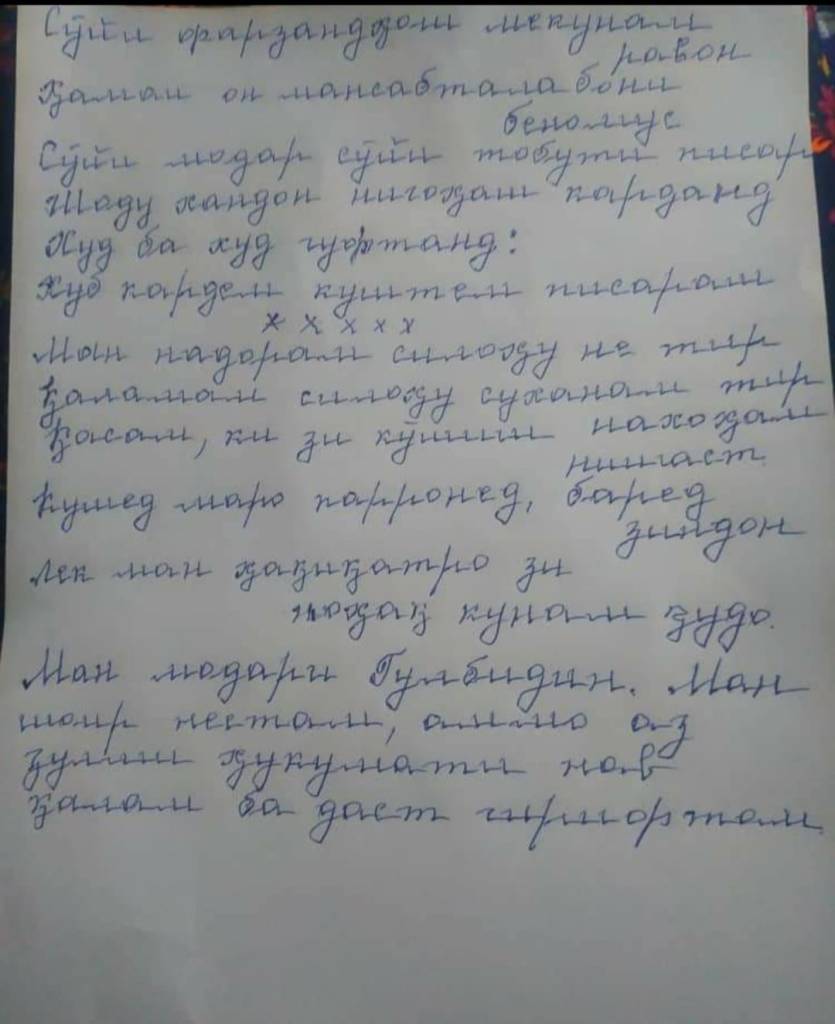 Сӯйи фарзандҳош мекунам
равон
Ҳамаи он мансабталабони
беномус
Сӯйи модар сӯйи тобути писар
Шоду хандон нигоҳаш карданд
Худ ба худ гуфтанд:
Хуб кардем куштем писарат
x x x x x
Ман надорам силоҳу не тир
Қаламам силоҳу суханам тир
Қасам, ки зи кӯшиш нахоҳам
нишаст
Кушед маро паронед, баред
зиндон
Лек ман ҳақиқатро зи
ноҳақ кунам ҷудо.
Ман модари Гулбидин. Ман
шоир нестам, аммо аз
зулми ҳукумати нав
қалам ба даст гирифтам